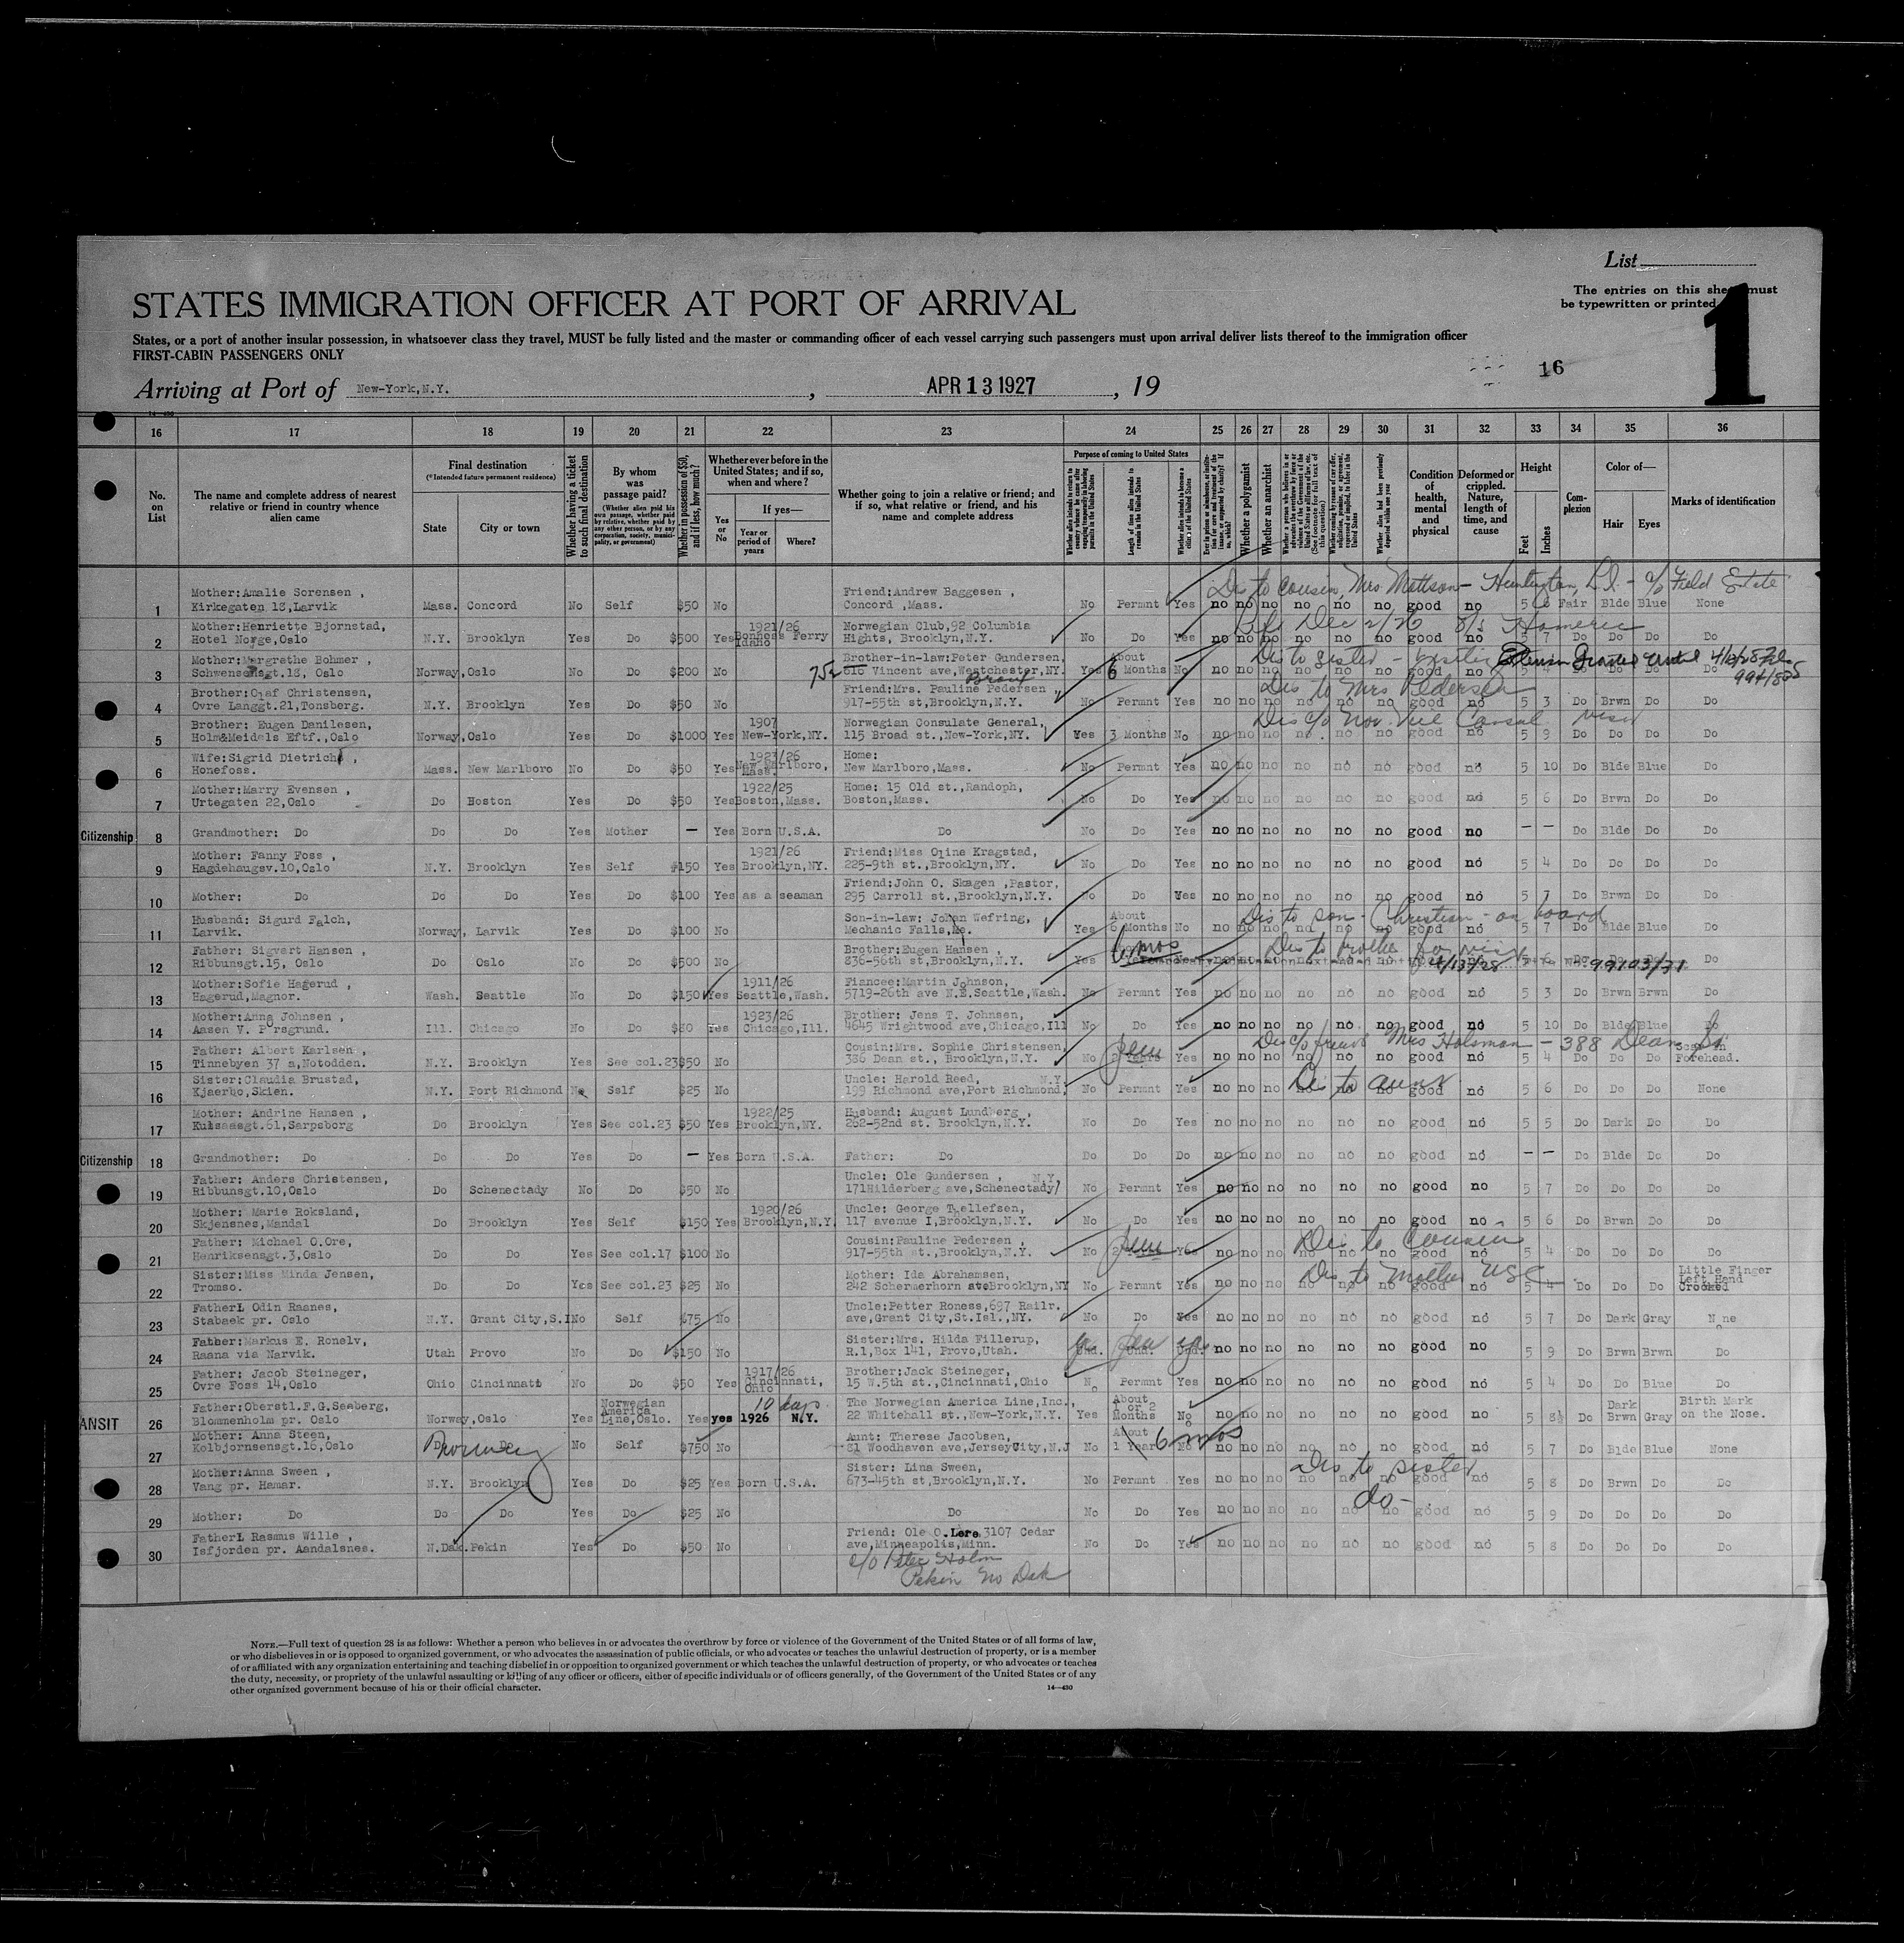 List
The entries on this sheet must
be typewritten or printed.
1
STATES IMMIGRATION OFFICER AT PORT OF ARRIVAL
States, or a port of another insular possession, in whatsoever class they travel, MUST be fully listed and the master or commanding officer of each vessel carrying such passengers must upon arrival deliver lists thereof to the immigration officer
FIRST-CABIN PASSENGERS ONLY
16
Arriving at Port of New-York,N.Y. , APR 13 1927 , 19
14—430
16 17 18 19 20 21 22 23 24 25 26 27 28 29 30 31 32 33 34 35 36
No. on List
The name and complete address of nearest relative or friend in country whence alien came
Final destination
(*Intended future permanent residence)
State
City or town
Whether having a ticket to such final destination
By whom was passage paid?
(Whether alien paid his own passage, whether paid by relative, whether paid by any other person, or by any corporation, society, municipality, or government)
Whether in possession of $50, and if less, how much?
Whether ever before in the United States; and if so, when and where?
Yes or No
If yes—
Year or period of years
Where?
Whether going to join a relative or friend; and if so, what relative or friend, and his name and complete address
Purpose of coming to United States
Length of time alien intends to remain in the United States
Whether alien intends to become a citizen of the United States
Whether a polygamist
Whether an anarchist
Condition of health, mental and physical
Deformed or crippled. Nature, length of time, and cause
Height
Feet
Inches
Complexion
Color of—
Hair
Eyes
Marks of identification
Dis to cousin, Mrs Mattson - Huntington, L.I. - c/o Field Estate
1 Mother:Amalie Sorensen , Kirkegaten 18,Larvik Mass. Concord No Self $50 No Friend:Andrew Baggesen , Concord ,Mass. No Permnt Yes no no no no no no good no 5 6 Fair Blde Blue None
2 Mother:Henriette Bjornstad, Hotel Norge,Oslo N.Y. Brooklyn Yes Do $500 Yes 1921/26 Bonners Ferry Idaho Norwegian Club,92 Columbia Hights, Brooklyn,N.Y. No Do Yes no no no no no no good no 5 7 Do Do Do Do
Dec 2/26 S/S Homeric
3 Mother:Margrethe Bohmer , Schwensensgt.18, Oslo Norway,Oslo No Do $200 No Brother-in-law:Peter Gundersen, Vincent ave,Westchester,NY. Yes About 6 Months No no no no no no no good no 5 4 Do Do Do Do
Bronx
Dis to sister
4 Brother:Olaf Christensen, Ovre Langgt.21,Tonsberg. N.Y. Brooklyn Yes Do $50 No Friend:Mrs. Pauline Pedersen , 917-55th st,Brooklyn,N.Y. No Permnt Yes no no no no no no good no 5 3 Do Brwn Do Do
Dis to Mrs Pedersen
5 Brother: Eugen Danilesen, Holm&Meidels Eftf.,Oslo Norway,Oslo Yes Do $1000 Yes 1907 New-York,NY. Norwegian Consulate General, 115 Broad st.,New-York,NY. Yes 3 Months No no no no no no no good no 5 9 Do Do Do Do
6 Wife:Sigrid Dietrich , Honefoss. Mass. New Marlboro No Do $50 Yes 1923/26 New Marlboro, Mass. Home: New Marlboro,Mass. No Permnt Yes no no no no no no good no 5 10 Do Blde Blue Do
7 Mother:Marry Evensen , Urtegaten 22,Oslo Do Boston Yes Do $50 Yes 1922/25 Boston,Mass. Home: 15 Old st.,Randoph, Boston,Mass. No Do Yes no no no no no no good no 5 6 Do Brwn Do Do
Citizenship 8 Grandmother: Do Do Do Yes Mother — Yes Born U.S.A. Do No Do Yes no no no no no no good no — — Do Blde Do Do
9 Mother: Fanny Foss , Hagdehaugsv.10,Oslo N.Y. Brooklyn Yes Self $150 Yes 1921/26 Brooklyn,NY. Friend:Miss Oline Kragstad, 225-9th st.,Brooklyn,NY. No Do Yes no no no no no no good no 5 4 Do Do Do Do
10 Mother: Do Do Do Yes Do $100 Yes as a seaman Friend:John O. Skagen ,Pastor, 295 Carroll st.,Brooklyn,N.Y. No Do Yes no no no no no no good no 5 7 Do Brwn Do Do
11 Husband: Sigurd Falch, Larvik. Norway, Larvik Yes Do $100 No Son-in-law: Johan Wefring, Mechanic Falls,Me. Yes About 6 Months No no no no no no no good no 5 7 Do Blde Blue Do
Dis to son - Christian - on board
12 Father: Sigvart Hansen , Ribbunsgt.15, Oslo Do Oslo No Do $500 No Brother:Eugen Hansen , 836-56th st,Brooklyn,N.Y. Yes 6 mos Do
4/13/28 99103/31
13 Mother:Sofie Hagerud , Hagerud,Magnor. Wash. Seattle No Do $150 Yes 1911/26 Seattle,Wash. Fiancee:Martin Johnson, 5719-26th ave N.E.Seattle,Wash. No Permnt Yes no no no no no no good no 5 3 Do Brwn Brwn Do
14 Mother:Anna Johnsen , Aasen V. Porsgrund. Ill. Chicago No Do $50 Yes 1923/26 Chicago,Ill. Brother: Jens T. Johnsen, 4645 Wrightwood ave,Chicago,Ill No Do Yes no no no no no no good no 5 10 Do Blde Blue Do
Mrs Holsman - 388 Dean St
15 Father: Albert Karlsen , Tinnebyen 37 a,Notodden. N.Y. Brooklyn Yes See col.23 $50 No Cousin:Mrs. Sophie Christensen, 386 Dean st., Brooklyn,N.Y. No Perm Yes no no no no no no good no 5 4 Do Do Do Scar in Forehead.
16 Sister:Claudia Brustad, Kjaerbo,Skien. N.Y. Port Richmond No Self $25 No Uncle: Harold Reed, N.Y. 199 Richmond ave,Port Richmond, No Permnt Yes no no no no no no good no 5 6 Do Do Do None
Dis to aunt
17 Mother: Andrine Hansen , Kulsaasgt.61,Sarpsborg Do Brooklyn Yes See col.23 $50 Yes 1922/25 Brooklyn,NY. Husband: August Lundberg , 262-52nd st. Brooklyn,N.Y. No Do Yes no no no no no no good no 5 5 Do Dark Do Do
Citizenship 18 Grandmother: Do Do Do Yes Do — Yes Born U.S.A. Father: Do Do Do Do no no no no no no good no — — Do Blde Do Do
19 Father: Anders Christensen, Ribbunsgt.10,Oslo Do Schenectady No Do $50 No Uncle: Ole Gundersen , N.Y. 171Hilderberg ave,Schenectady/ No Permnt Yes no no no no no no good no 5 7 Do Do Do Do
20 Mother: Marie Roksland, Skjensnes,Mandal Do Brooklyn Yes Self $150 Yes 1920/26 Brooklyn,N.Y. Uncle: George Tellefsen, 117 avenue I,Brooklyn,N.Y. No Do Yes no no no no no no good no 5 6 Do Brwn Do Do
21 Father: Michael O.Ore, Henriksensgt.3,Oslo Do Do Yes See col.17 $100 No Cousin:Pauline Pedersen , 917-55th st.,Brooklyn,N.Y. No Perm Yes no no no no no no good no 5 4 Do Do Do Do
Dis to Cousin
22 Sister:Miss Minda Jensen, Tromso. Do Do Yes See col.23 $25 No Mother: Ida Abrahamsen, 242 Schermerhorn st.Brooklyn,NY No Permnt Yes no no no no no no good no 5 4 Do Do Do Little Finger Left Hand Crooked
Dis to Mother USC
23 Father: Odin Raanes, Stabaek pr. Oslo N.Y. Grant City,S.I No Self $75 No Uncle:Petter Roness,697 Railr. ave,Grant City,St.Isl.,NY. No Do Yes no no no no no no good no 5 7 Do Dark Gray None
24 Father:Markus E. Ronelv, Raana via Narvik. Utah Provo No Do $150 No Sister:Mrs. Hilda Fillerup, R.1,Box 141, Provo,Utah. Und. Und. Und. no no no no no no good no 5 9 Do Brwn Brwn Do
25 Father: Jacob Steineger, Ovre Foss 14,Oslo Ohio Cincinnati No Do $50 Yes 1917/26 Cincinnati, Ohio Brother: Jack Steineger, 15 W.5th st.,Cincinnati,Ohio No Permnt Yes no no no no no no good no 5 4 Do Do Blue Do
ANSIT 26 Father:Oberstl.F.G.Seeberg, Blommenholm pr. Oslo Norway,Oslo Yes Norwegian America Line,Oslo. Yes yes 10 days 1926 N.Y. The Norwegian America Line,Inc., 22 Whitehall st.,New-York,N.Y. Yes About 1 or 2 Months No no no no no no no good no 5 8½ Do Dark Brwn Gray Birth Mark on the Nose.
27 Mother: Anna Steen, Kolbjornsensgt.16,Oslo Norway No Self $750 No Aunt: Therese Jacobsen, 31 Woodhaven ave,JerseyCity,N.J No About 1 Year 6 mos No no no no no no no good no 5 7 Do Blde Blue None
28 Mother:Anna Sween , Vang pr. Hamar. N.Y. Brooklyn Yes Do $25 Yes Born U.S.A. Sister: Lina Sween, 673-45th st,Brooklyn,N.Y. No Permnt Yes no no no no no no good no 5 8 Do Brwn Do Do
Dis to sister
do-
29 Mother: Do Do Do Yes Do $25 No Do No Do Yes no no no no no no good no 5 9 Do Do Do Do
30 Father: Rasmus Wille , Isfjorden pr. Aandalsnes. N.Dak.Pekin Yes Do $50 No Friend: Ole O.Lere,3107 Cedar ave,Minneapolis,Minn. No Do Yes no no no no no no good no 5 8 Do Do Do Do
c/o Peter Holm
Pekin No Dak
NOTE.—Full text of question 28 is as follows: Whether a person who believes in or advocates the overthrow by force or violence of the Government of the United States or of all forms of law,
or who disbelieves in or is opposed to organized government, or who advocates the assassination of public officials, or who advocates or teaches the unlawful destruction of property, or is a member
of or affiliated with any organization entertaining and teaching disbelief in or opposition to organized government or which teaches the unlawful destruction of property, or who advocates or teaches
the duty, necessity, or propriety of the unlawful assaulting or killing of any officer or officers, either of specific individuals or of officers generally, of the Government of the United States or of any
other organized government because of his or their official character.
14—430